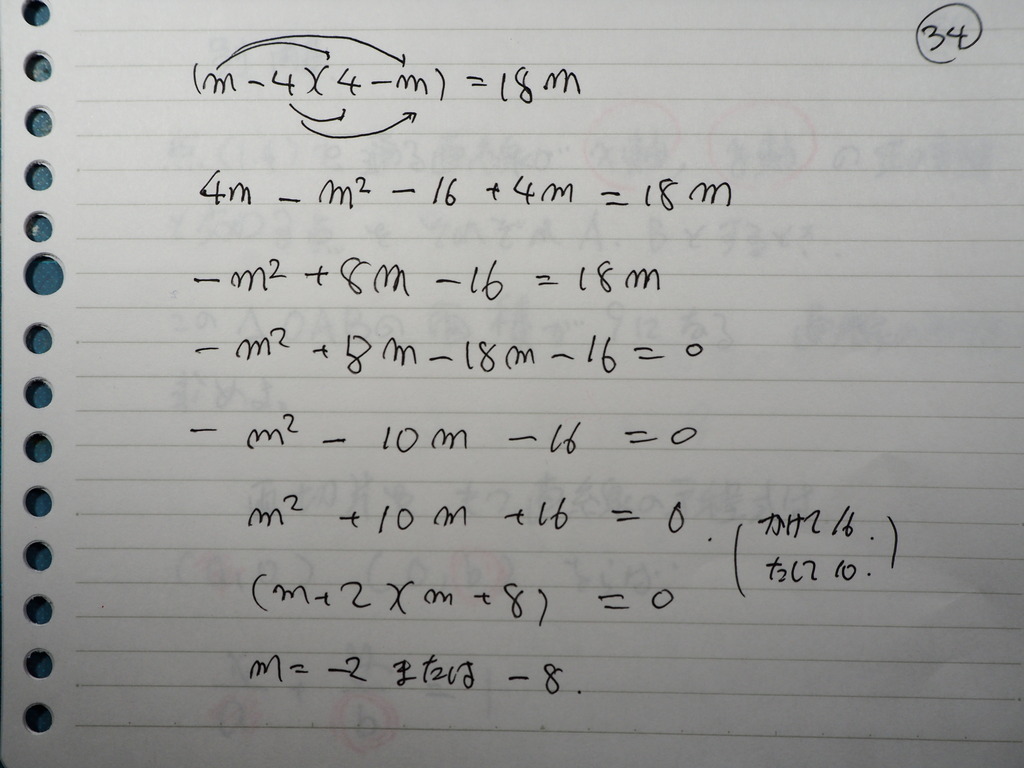 34
(m-4)(4-m)=18m
4m-m²-16+4m=18m
-m²+8m-16=18m
-m²+8m-18m-16=0
-m²-10m-16=0
m²+10m+16=0. (かけて16.
たして10.)
(m+2)(m+8)=0
m=-2 または -8.